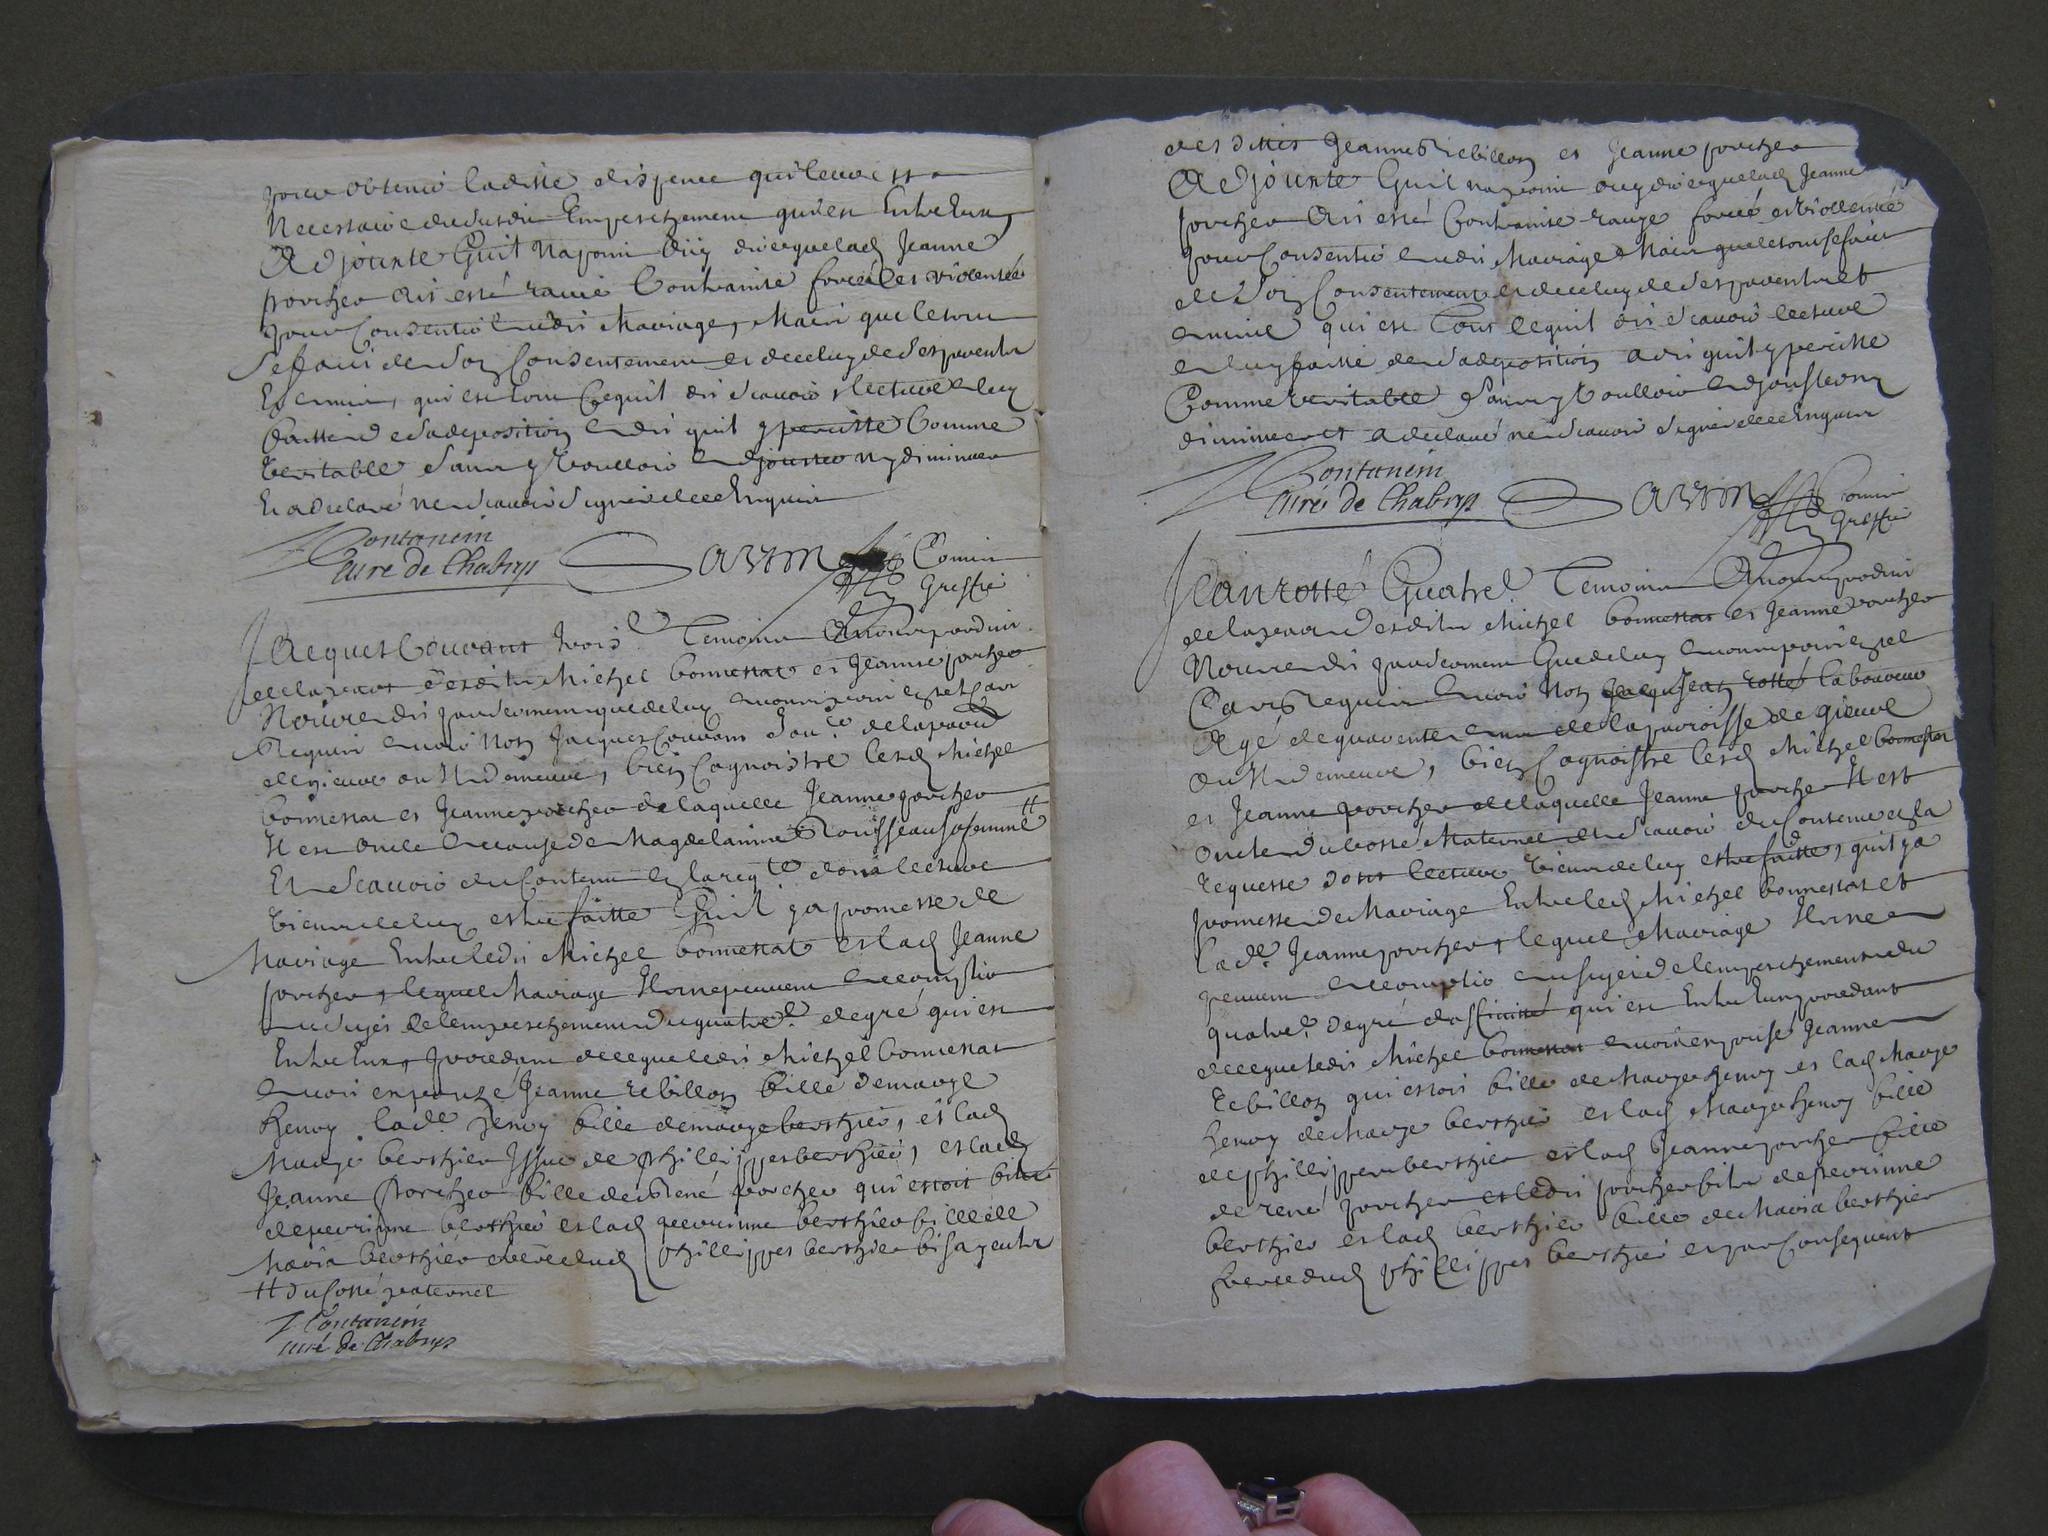 pour obtenir laditte dispence qui leur est
Necessaire du susdit Empeschement qui est Entre Eux
Adjouste Quil na point ouy dire que lad Jeanne
porcher ait esté ravie Contrainte forcée et violentée
pour Consentir audit Mariage, Mais que le tout
se faict de son Consentement et de celuy de ses parentz
Et amis, qui est tout Ce quil dit scavoir, lecture a luy
faitte de sa deposition a dit quil y persiste Comme
veritable sans y voulloir adjouster ny diminuer
Et a declaré ne scavoir signer de ce Enquis
Contanein
Curé de Chabrys Sarim Comis
Greffier
Jacques Couvant trois.e Temoins A nous produit
de la part desditz Michel bonnestat et Jeanne porcher
Nous a dit
Requis avoir Nom Jacques Couvant
de gieure ou Il demeure, bien Cognoistre lesd Michel
bonnestat et Jeanne porcher de laquelle Jeanne porcher
Il est oncle a cause de Magdelainne Rousseau sa femme #
Et scavoir du Contenu En la reqte dont lecture
vient de luy estre faitte Quil y a promesse de
Mariage Entre ledit Michel bonnestat et lad Jeanne
porcher, lequel Mariage Ils ne peuvent accomplir
au sujet de lempeschement du quatre.e degré qui est
Entre Eux, procedant de ce que ledit Michel bonnestat
avoit espouzé Jeanne rebillon fille de marye
henry lad.e henry fille de marye berthier, et lad
Marye berthier Issue de phillippes berthier, et lad
Jeanne Porcher fille de René porcher qui estoit filz
de perrinne berthier et lad perrinne berthier fille de
Maria berthier frere dud phillippes berthier bisayeulx
# du costé paternel
Contanein
curé de Chabrys
des dittes Jeanne Rebillon et Jeanne porcher
Adjouste Quil na point ouy dire que lad Jeanne
porcher Ait esté Contrainte ravye forcée et viollentée
pour Consentir audit Mariage Mais que le tout se faict
de son Consentement et de celuy de ses parentz et
amis qui est Tout Ce quil dit scavoir lecture
a luy faitte de sa deposition a dit quil y persiste
Comme veritable sans y voulloir adjouster ny
diminuer et a declaré ne scavoir signer de ce Enquis
Contanein
Curé de Chabrys Sarim Comis
Greffier
Jean rotté Quatre.e Temoins A nous produit
de la part desditz Michel bonnestat et Jeanne porcher
Nous a dit
Requis avoir Nom Jean rotté laboureur
Agé de quarente ans de la paroisse de gieure
ou Il demeure, bien Cognoistre lesd Michel bonnestat
et Jeanne porcher de laquelle Jeanne porcher Il est
oncle du costé Maternel et scavoir du Contenu En la
requeste dont lecture vient de luy estre faitte, quil y a
promesse de Mariage Entre led Michel bonnestat et
lad.e Jeanne porcher, lequel Mariage Ils ne
peuvent accomplir au sujet de lempeschement du
quatre.e degré daffinitté qui est Entre Eux procedant
de ce que ledit Michel bonnestat avoit espousé Jeanne
rebillon qui estoit fille de Marye henry et lad Marye
henry de Marye berthier et lad Marye henry fille
de phillippes berthier et lad Jeanne porcher fille
de rené porcher et ledit porcher filz de perrinne
berthier et lad berthier fille de Maria berthier
frere dud phillippes berthier et par Consequent